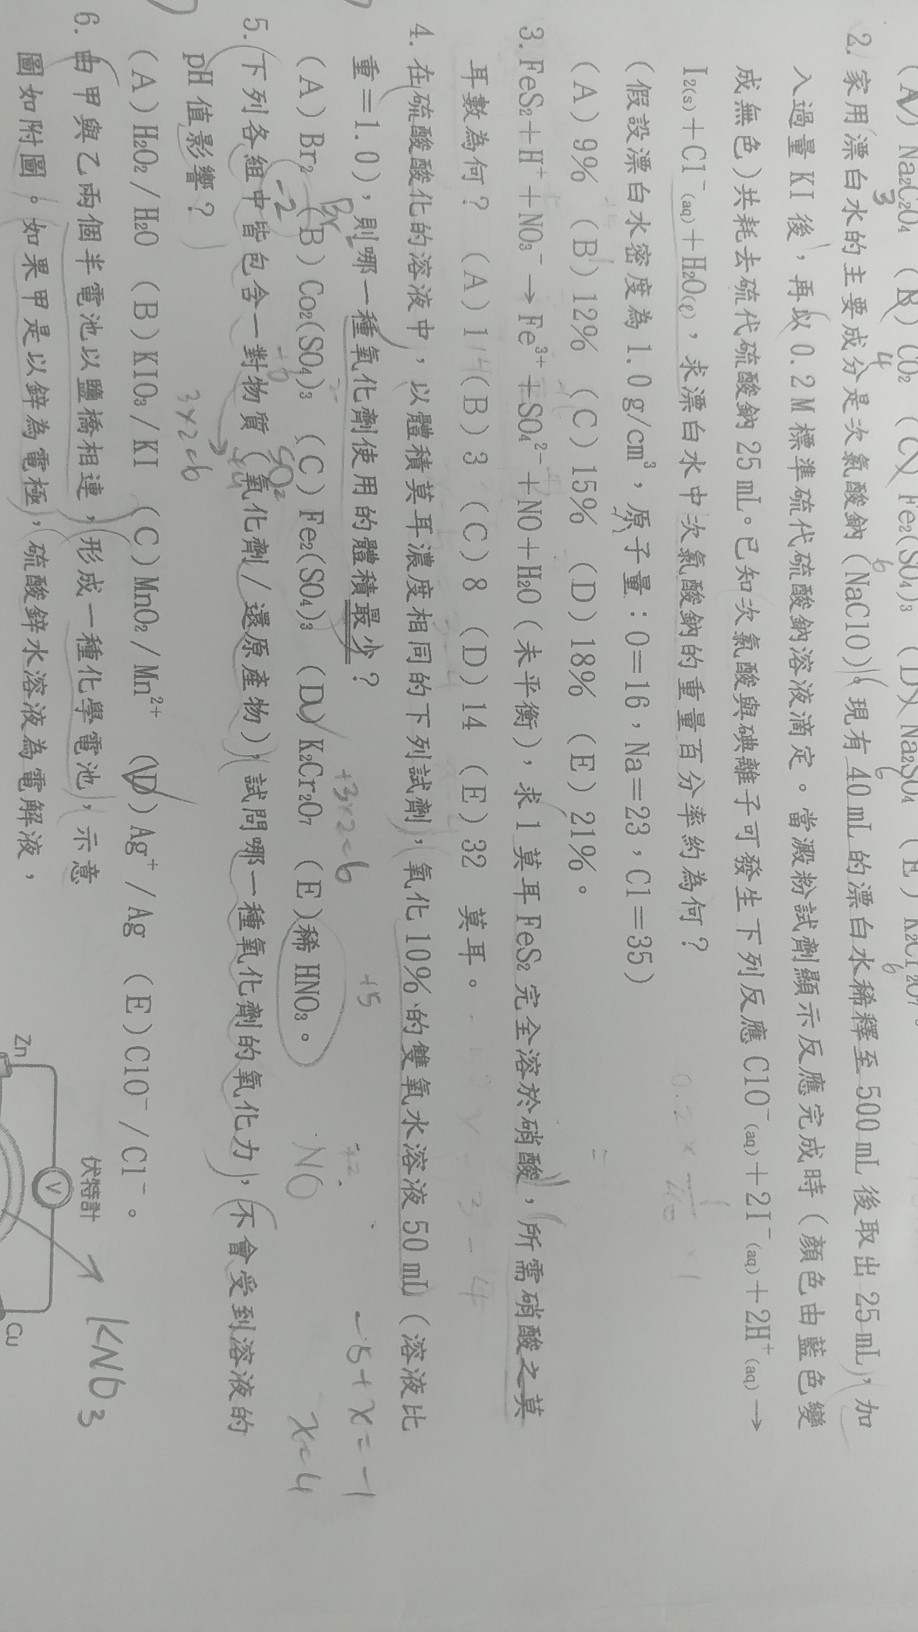 (A) Na₂C₂O₄ (B) CO₂ (C) Fe₂(SO₄)₃ (D) Na₂SO₄ (E) K₂Cr₂O₇
3 4 6 6 6
2. 家用漂白水的主要成分是次氯酸鈉(NaClO),現有40 mL的漂白水稀釋至500 mL後取出25 mL,加
入過量KI後,再取0.2 M標準硫代硫酸鈉溶液滴定。當澱粉試劑顯示反應完成時(顏色由藍色變
成無色)共耗去硫代硫酸鈉25 mL。已知次氯酸與碘離子可發生下列反應ClO⁻(aq)+2I⁻(aq)+2H⁺(aq)→
I₂(s)+Cl⁻(aq)+H₂O(ℓ),求漂白水中次氯酸鈉的重量百分率約為何?
(假設漂白水密度為1.0 g/cm³,原子量:O=16,Na=23,Cl=35)
(A) 9% (B) 12% (C) 15% (D) 18% (E) 21%。
3. FeS₂+H⁺+NO₃⁻→Fe³⁺+SO₄²⁻+NO+H₂O(未平衡),求1莫耳FeS₂完全溶於硝酸,所需硝酸之莫
耳數為何? (A) 1 (B) 3 (C) 8 (D) 14 (E) 32 莫耳。
4. 在硫酸酸化的溶液中,以體積莫耳濃度相同的下列試劑,氧化10%的雙氧水溶液50 mL(溶液比
重=1.0),則哪一種氧化劑使用的體積最少?
-5+x=-1
(A) Br₂ (B) Co₂(SO₄)₃ (C) Fe₂(SO₄)₃ (D) K₂Cr₂O₇ (E)稀HNO₃。
-2 +3×2=6 +5 NO x=4
5. 下列各組中皆包含一對物質(氧化劑/還原產物),試問哪一種氧化劑的氧化力,不會受到溶液的
SO₂
pH值影響?
3×2=6
(A) H₂O₂/H₂O (B) KIO₃/KI (C) MnO₂/Mn²⁺ (D) Ag⁺/Ag (E) ClO⁻/Cl⁻。
6. 由甲與乙兩個半電池以鹽橋相連,形成一種化學電池,示意
圖如附圖。如果甲是以鋅為電極,硫酸鋅水溶液為電解液,
伏特計
KNO₃
V
Zn
Cu